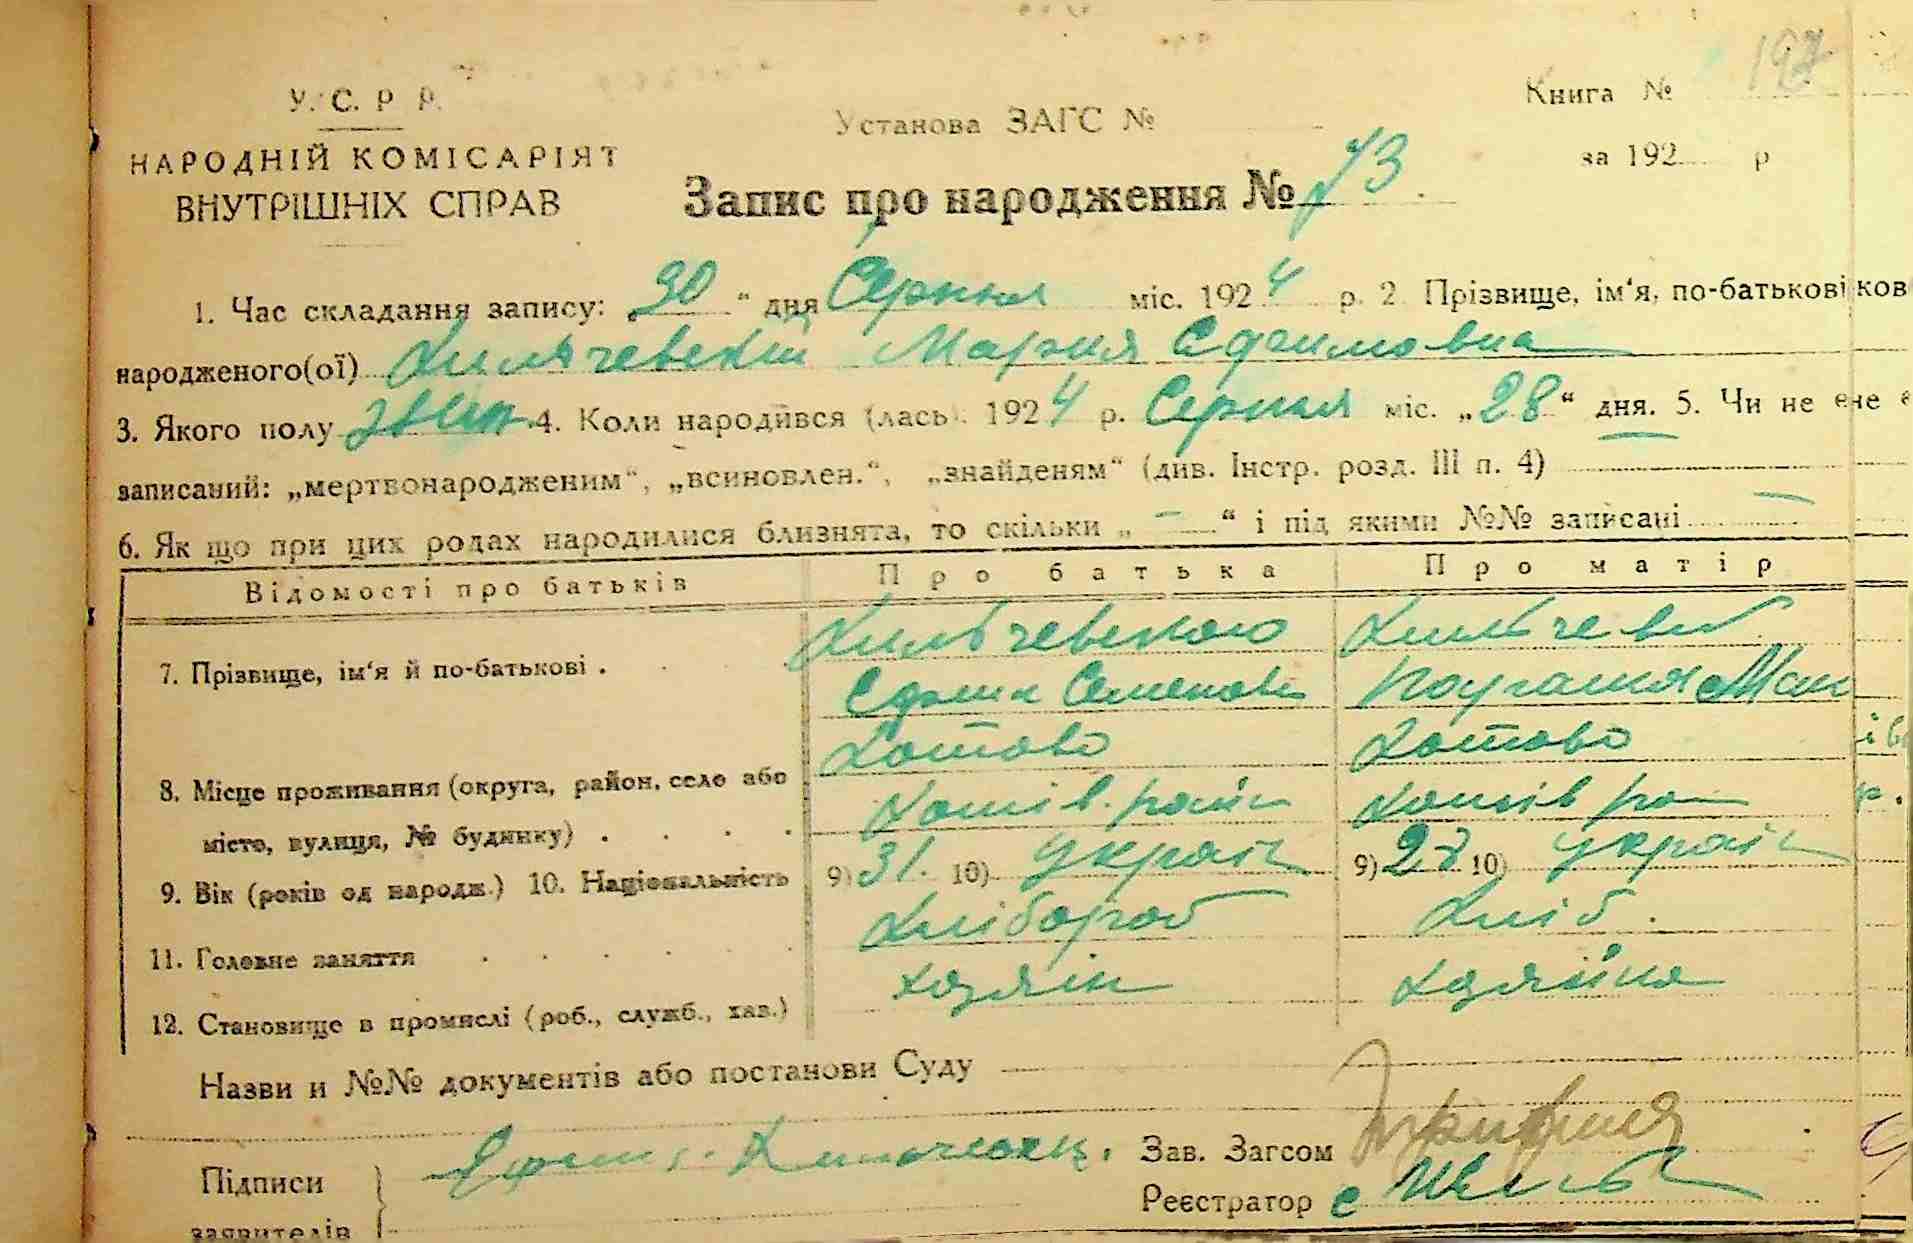 197
У. С. Р. Р.
Установа ЗАГС №
Книга №
НАРОДНІЙ КОМІСАРІЯТ
ВНУТРІШНІХ СПРАВ
за 192 р
Запис про народження № 73
1. Час складання запису: „30“ дня Серпня міс. 1924 р. 2 Прізвище, ім‘я, по-батькові ков
народженого(ої) Мария Ефтимовна
3. Якого полу жин. 4. Коли народився (лась). 1924 р. Серпня міс. „28“ дня. 5. Чи не е не
записаний: „мертвонародженим“, „всиновлен.“, „знайденям“ (див. Інстр. розд. III п. 4)
6. Як що при цих родах народилися близнята, то скільки „ – “ і під якими №№ записані –
Відомості про батьків Про батька Про матір
7. Прізвище, ім‘я й по-батькові .
8. Місце проживання (округа, район, село або
місто, вулиця, № будинку) . . . .
Хотово Хотово
Хотів. район Хотів ра
9. Вік (років од народж.) 10. Національність 9) 31. 10) Україн 9) 28 10) Україн
11. Головне заняття . . . . . Хлібороб Хліб.
12. Становище в промислі (роб., служб., хаз.) хазяін хазяйка
Назви и №№ документів або постанови Суду
Підписи
заявителів
Зав. Загсом
Реєстратор